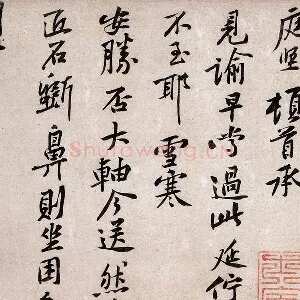 庭堅頓首承
見諭早嘗過此延佇
不至耶雪寒
安勝否大軸今送然
匠石斵鼻則坐困